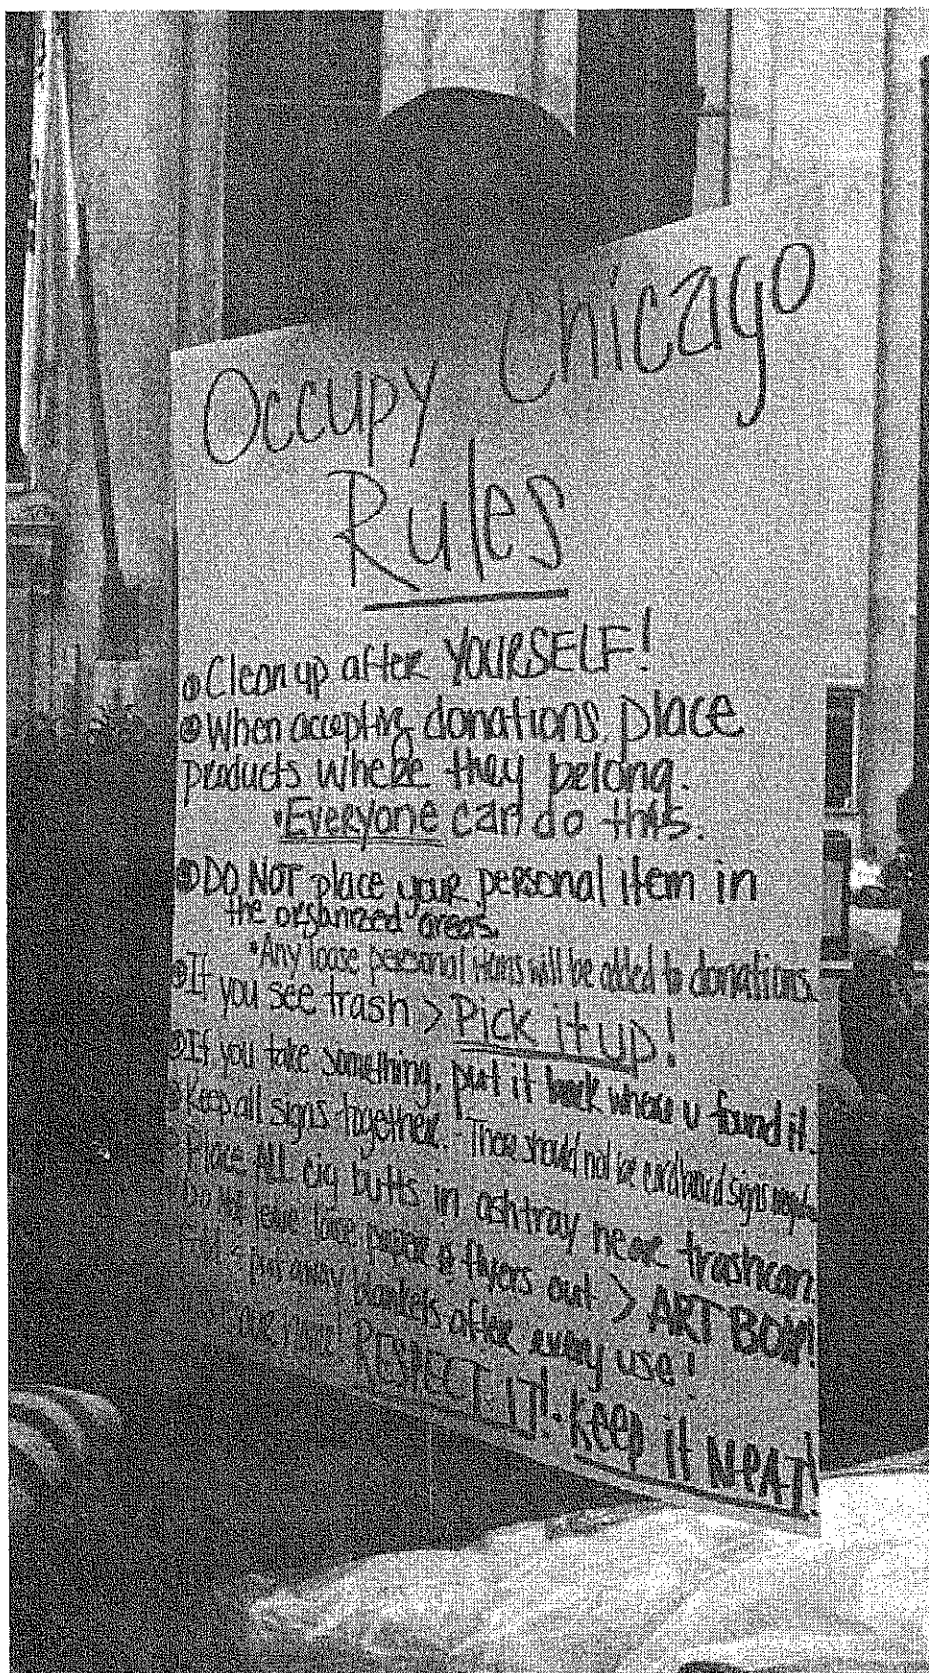 Occupy Chicago
Rules
Clean up after YOURSELF!
When accepting donations, place
products where they belong.
• Everyone can do this.
DO NOT place your personal item in
the organized areas.
• Any loose personal items will be added to donations.
If you see trash > Pick it up!
If you take something, put it back where u found it.
Keep all signs together. - There should not be cardboard signs
Place ALL cig butts in ashtray near trashcan.
Do not leave loose paper & flyers out > ART BOX!
Put away blankets after every use!
RESPECT IT! - Keep it NEAT!